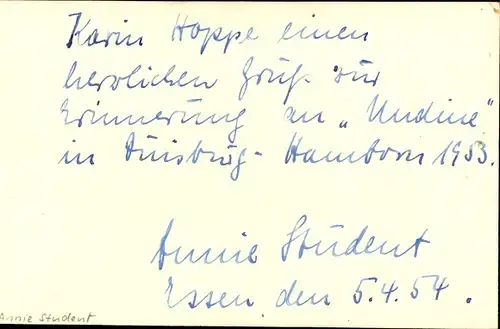 Karin Hoppe einen
herzlichen Gruß zur
Erinnerung an „Undine"
in Duisburg - Hamborn 1953.
Annie Student
Essen den 5.4.54.
Annie Student